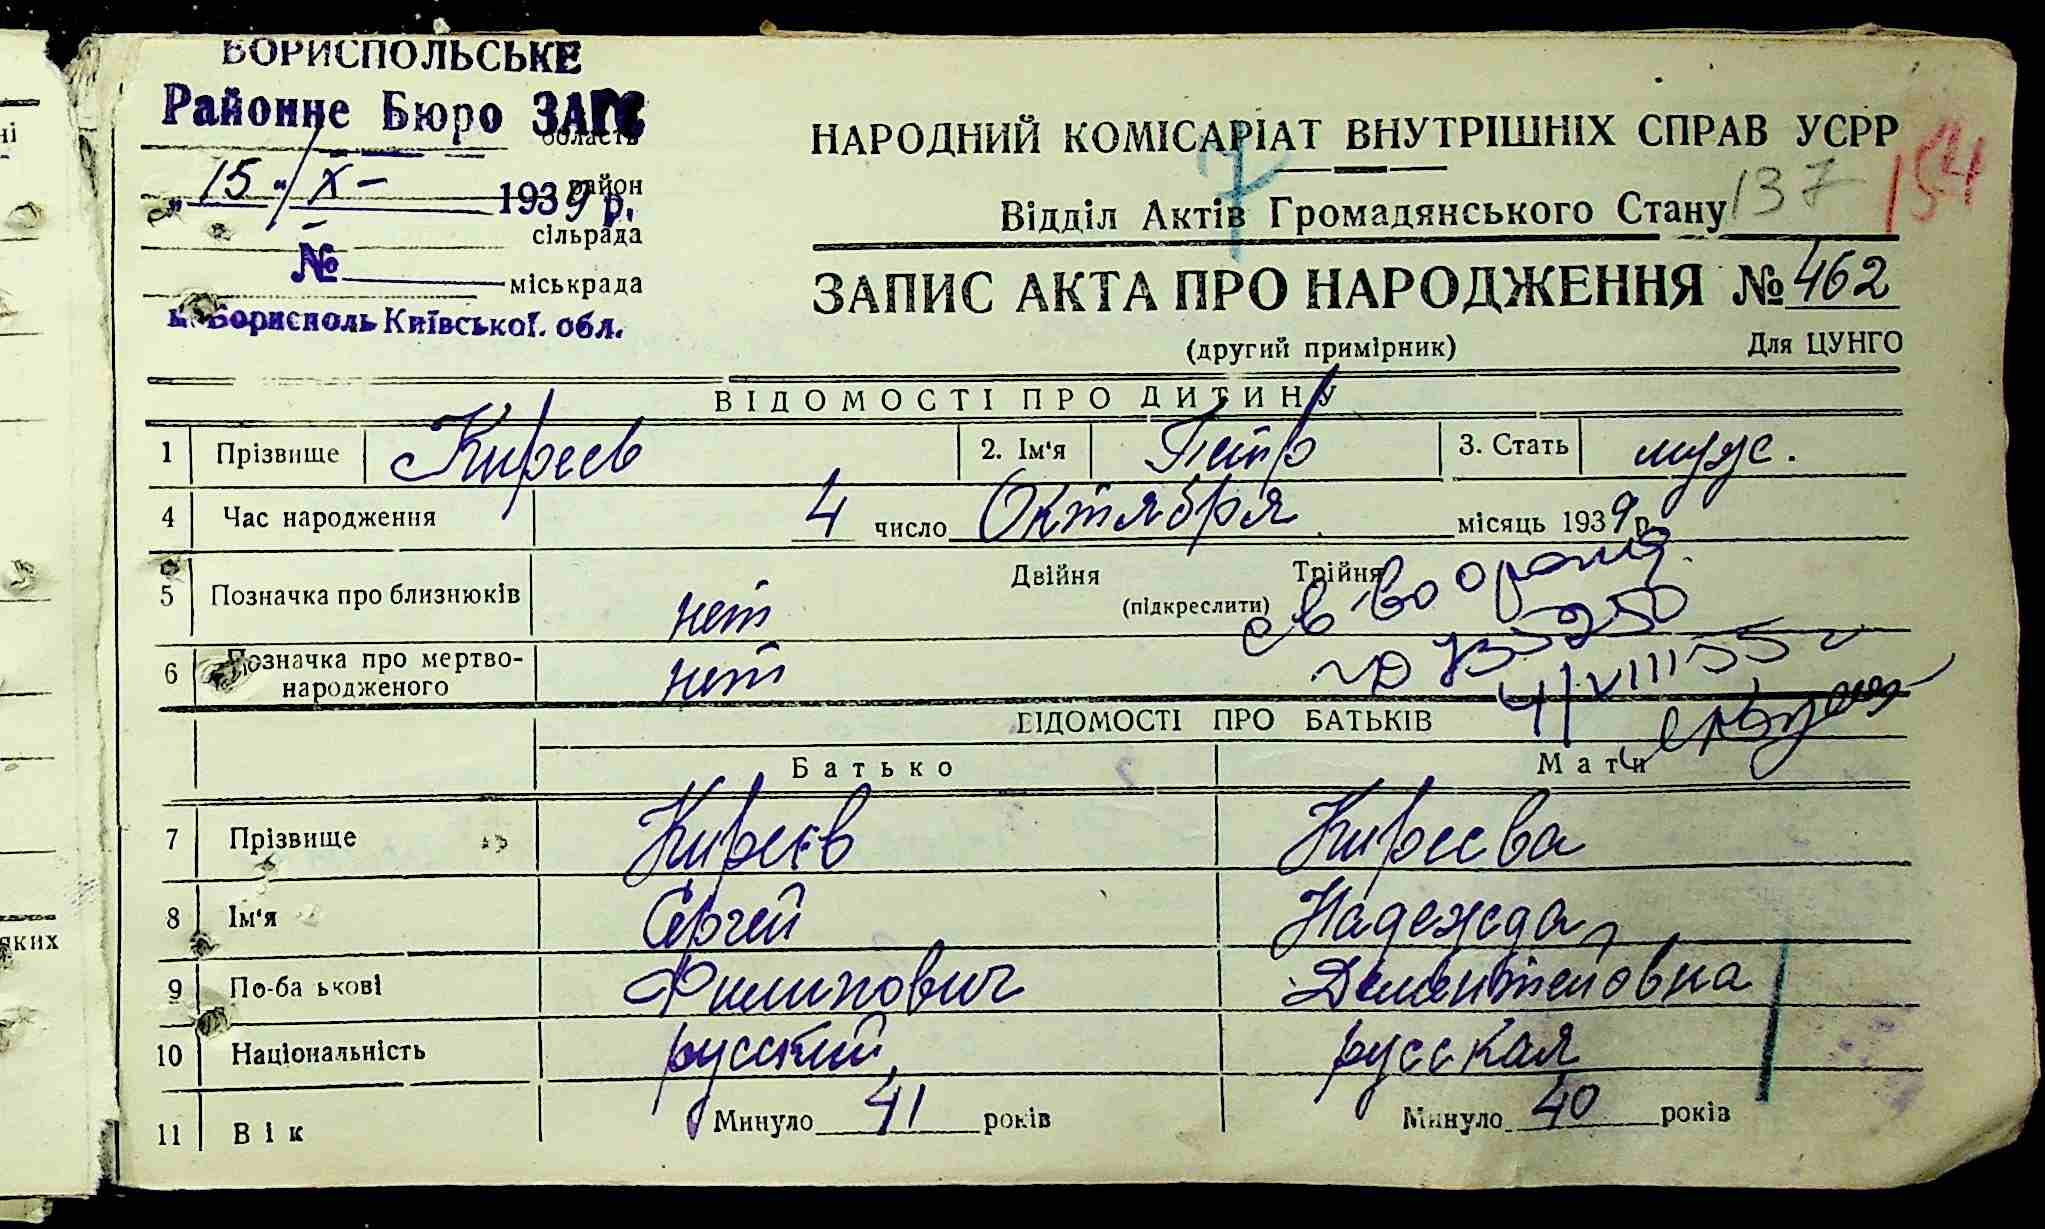 БОРИСПОЛЬСЬКЕ
Районне Бюро ЗАГС
область
„15“/X- 1939 р.
район
сільрада
№
міськрада
м. Бориспіль Київської. обл.
НАРОДНИЙ КОМІСАРІАТ ВНУТРІШНІХ СПРАВ УСРР
Відділ Актів Громадянського Стану 137 154
ЗАПИС АКТА ПРО НАРОДЖЕННЯ № 462
(другий примірник) Для ЦУНГО
ВІДОМОСТІ ПРО ДИТИНУ
1 Прізвище Киреев 2. Ім'я Петр 3. Стать муж.
4 Час народження 4 число Октября місяць 1939 р.
5 Позначка про близнюків нет Двійня Трійня
(підкреслити)
6 Позначка про мертво-
народженого нет
4/VIII 55 г
ВІДОМОСТІ ПРО БАТЬКІВ
Батько Мати
7 Прізвище Киреев Киреева
8 Ім'я Сергей Надежда
9 По-ба ькові Филипович Дементьевна
10 Національність русский русская
11 Вік Минуло 41 років Минуло 40 років
яких